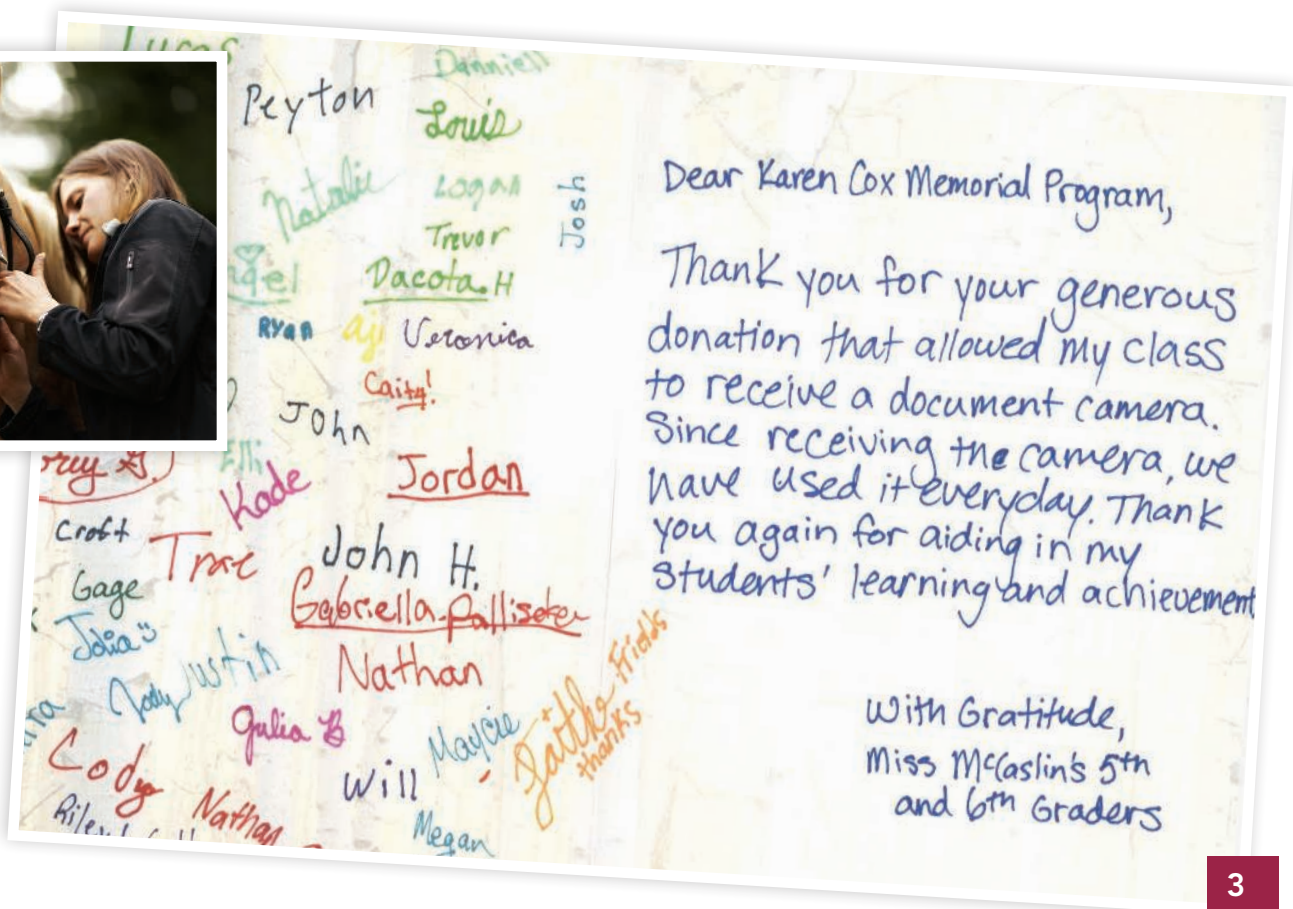 Lucas
Danniell
Peyton
Louis
Natalie
Logan
Josh
Trevor
Dacota.H
Ryan
aj
Veronica
Caity!
John
Elli
Kade
Jordan
Croft
Trae
John H.
Gage
Gabriella
Jolia
Justin
Nathan
Jody
Julia B
Maycie
Fields
thanks
Cody
Will
Nathan
Megan
Riley
Dear Karen Cox Memorial Program,
Thank you for your generous
donation that allowed my class
to receive a document camera.
Since receiving the camera, we
have used it everyday. Thank
you again for aiding in my
students' learning and achievement
With Gratitude,
Miss McCaslin's 5th
and 6th Graders
3